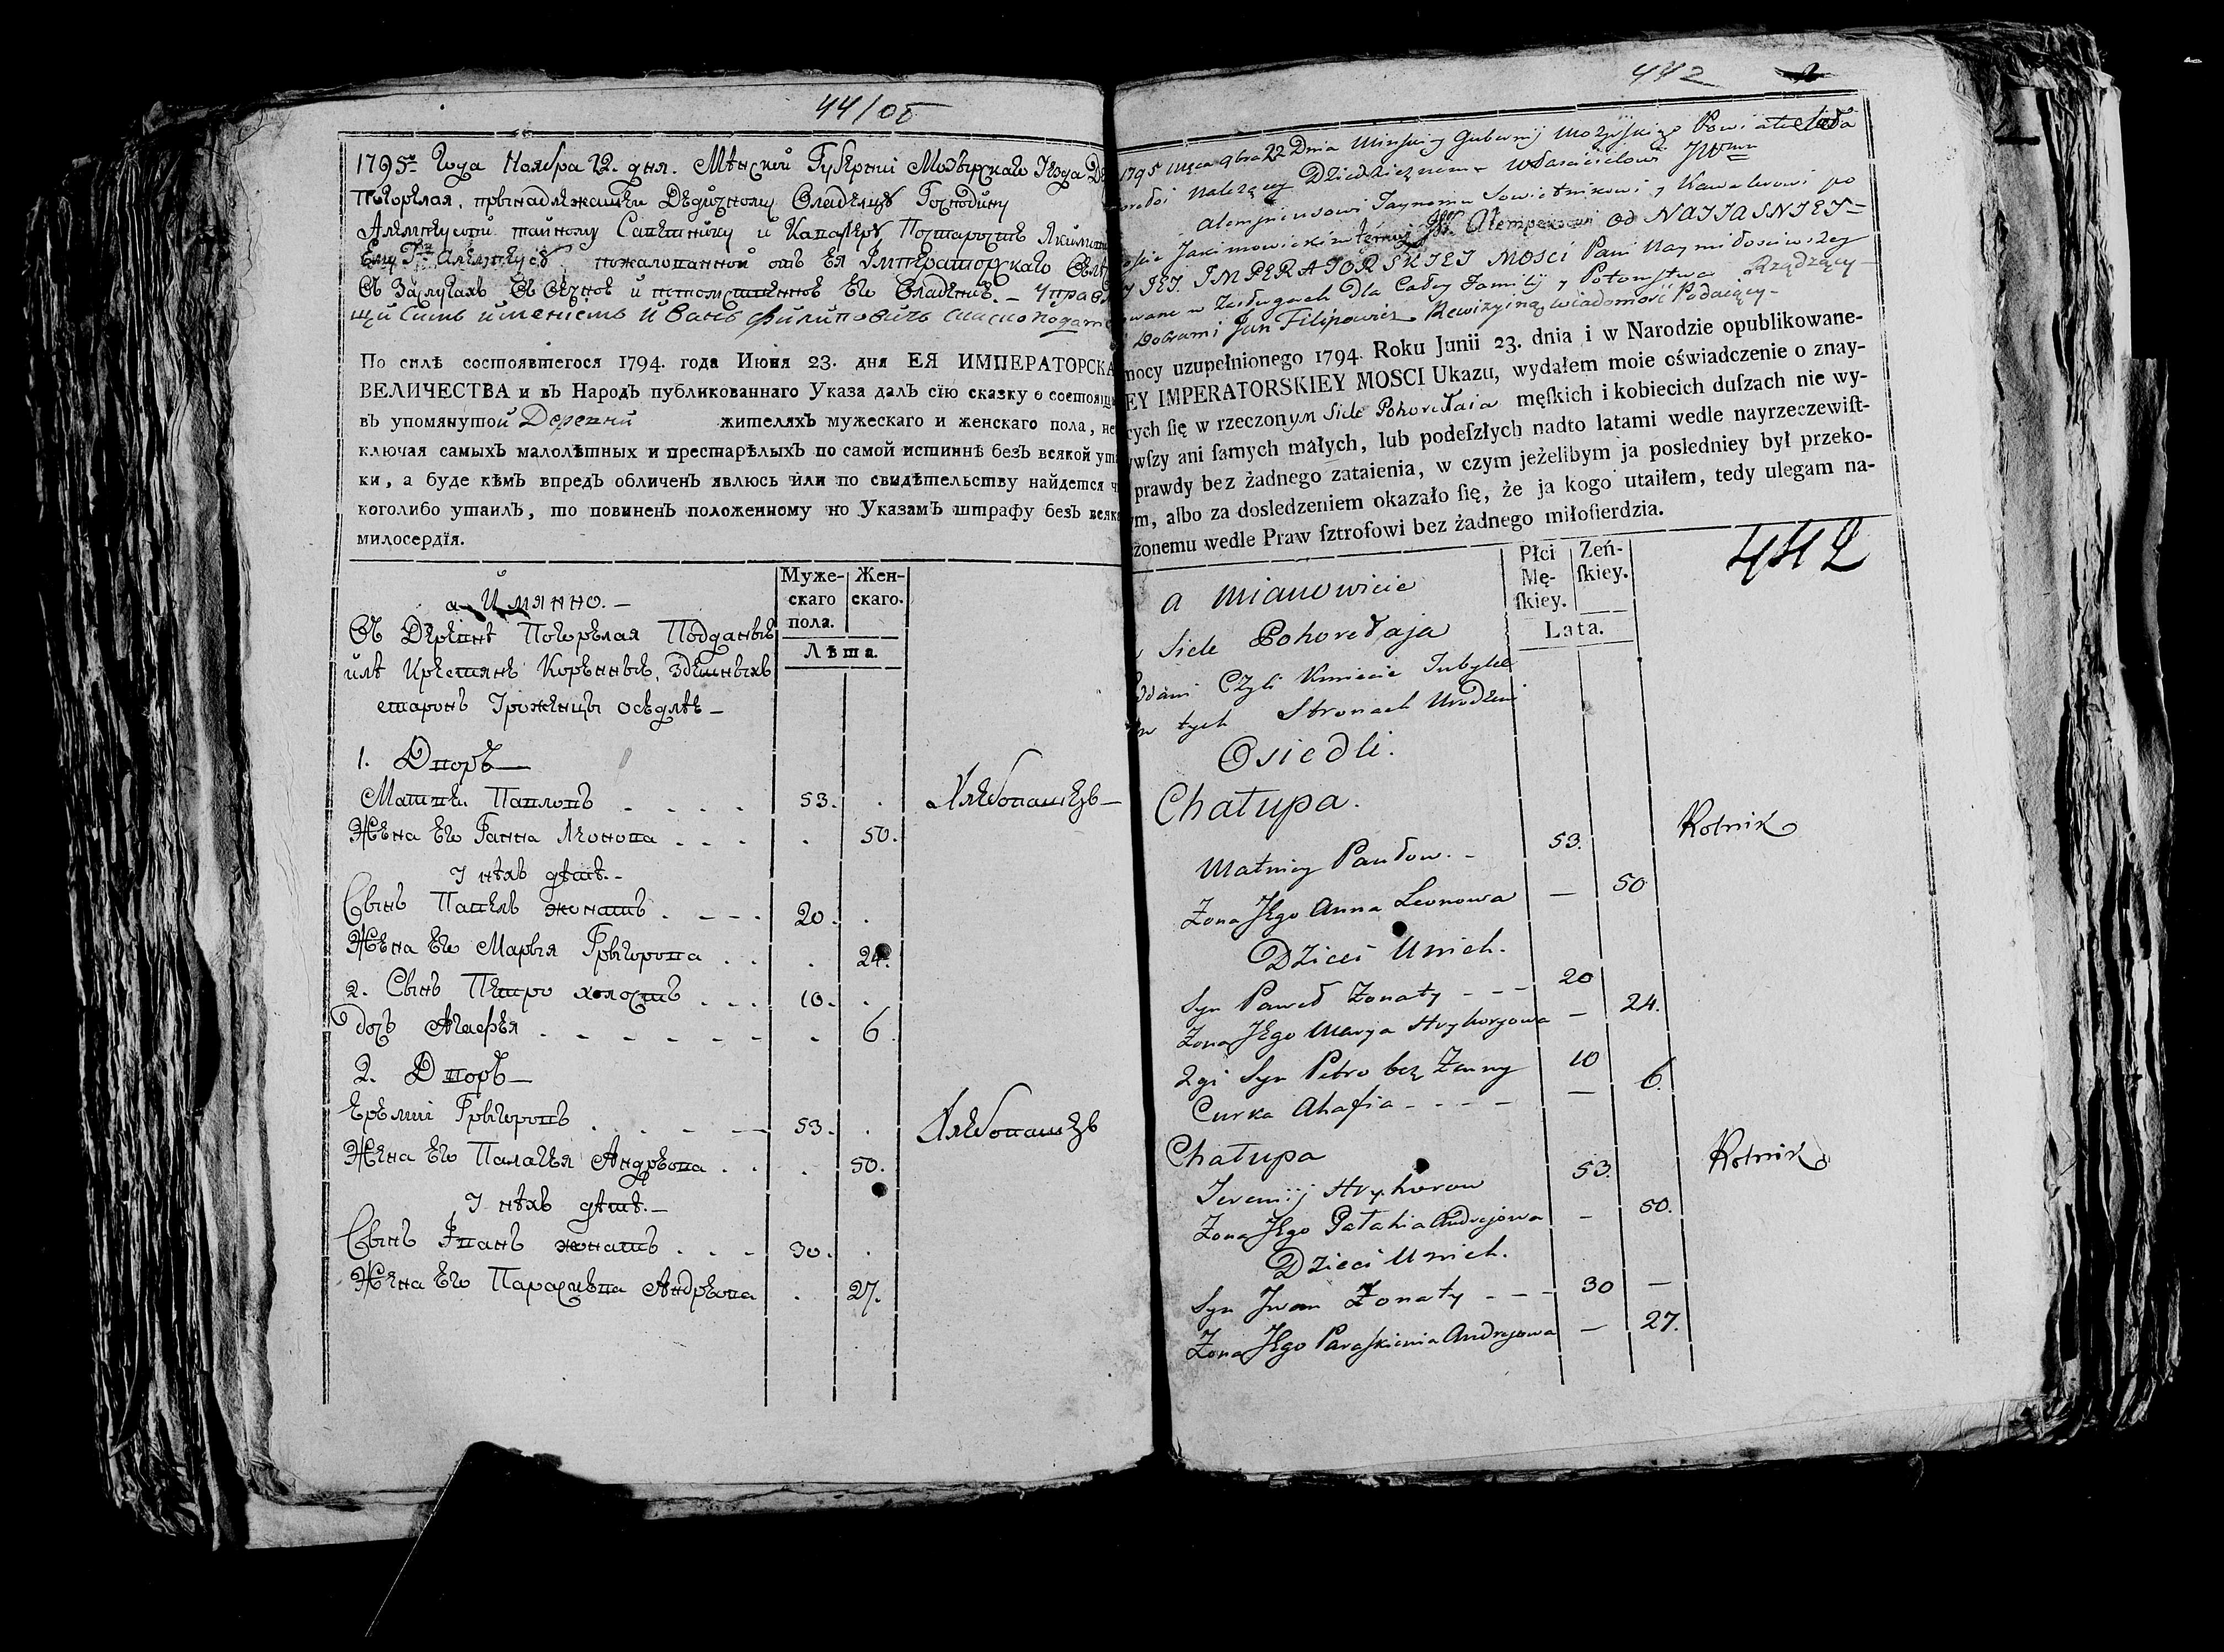 44/об
1795г Года Ноября 22. дня. Мѣнской Губерніи Мозырскаго Уезда
Погорелая, принадлежащеи Дедизному Владелцу Господину
тайному и по Староств
пожалованной отъ Ея Імператорскаго
Въ Заслугахъ Въ Вечное и Его Владение. - Управ
щи симъ имениемъ Иванъ Филиповичъ
По силѣ состоявшегося 1794. года Июня 23. дня ЕЯ ИМПЕРАТОРСКА
ВЕЛИЧЕСТВА и въ Народъ публикованнаго Указа далъ сїю сказку о состоящ
въ упомянутой Деревни жителяхъ мужескаго и женскаго пола, не
ключая самыхъ малолѣтныхъ и престарѣлыхъ по самой истиннѣ безъ всякой ута
ки, а буде кѣмъ впредъ обличенъ явлюсь или по свидѣтельству найдется ч
коголибо утаилъ, то повиненъ положенному по Указамъ штрафу безъ всяк
милосердїя.
а Имянно. -
Муже-скаго пола. Жен-скаго.
Лѣта.
Въ Деревне Погорелая Подданые
иле Крестяне Коренные, здешныхъ
старонъ Уроженцы оседлые -
1. Дворъ
Матвеи Павловъ 53. . Хлебопашецъ
Жена Его Ганна Леонова . 50.
У нихъ дети. -
Сынъ Павелъ женатъ 20. .
Жена Его Марья Грыгорова . 24.
2. Сынъ Петро холостъ 10. .
дочь Агафея . 6
2. Дворъ
Еремій Грыгоровъ 53. . Хлебопашецъ
Жена Его Палагея Андреова . 50.
У нихъ дети. -
Сынъ Іванъ женатъ 30. .
Жена Его Параскева Андреова . 27.
442
1795 9bra 22 Dnia Minskiey Gubernij Mozyrskiego Powiatu
Nalezącey Dziedzicznemu Własicielowi JWmu
Alempiuszowi Taynemu Sowietnikowi y Kawalerowi po
Od NAJJASNIEJ=
y JEJ. IMPERATORSKIEJ MOSCI Pani Naymiłosciwszey
w Zasługach Dla Całey Familij y Potomstwa Rządzący
Dobrami Jan Filipowicz Rewizyiną wiadomość Podaięcy -
mocy uzupełnionego 1794. Roku Junii 23. dnia i w Narodzie opublikowane-
EY IMPERATORSKIEY MOSCI Ukazu, wydałem moie oświadczenie o znay-
cych ſię w rzeczonym Siele Pohorełaia męſkich i kobiecich duſzach nie wy-
wſzy ani ſamych małych, lub podeſzłych nadto latami wedle nayrzeczewiſt-
prawdy bez żadnego zataienia, w czym jeżelibym ja posledniey był przeko-
ym, albo za dosledzeniem okazało ſię, że ja kogo utaiłem, tedy ulegam na-
żonemu wedle Praw ſztrofowi bez żadnego miłoſierdzia.
442
Płci Mę-ſkiey. Zeń-ſkiey.
Lata.
a mianowicie
Siele Pohorełaja
Czyli Kmiecie
w tych Stronach Urodzeni
Osiedli.
Chałupa.
Matwiey Pawłow. - 53. Rolnik
Zona Jego Anna Leonowa — 50
Dzieci Unich.
Syn Paweł Zonaty - - - 20
Zona Jego Marya Hryhorjowa — 24.
2gi Syn Petro bez Zenny 10
Curka Ahafia - - - - — 6.
Chałupa
Jeremij Hryhorow 53. Rolnik
Zona Jego Pałahia Andrejowa — 50.
Dzieci Unich.
Syn Jwan Zonaty - - - 30 —
Zona Jego Paraskiewia Andrejowa — 27.